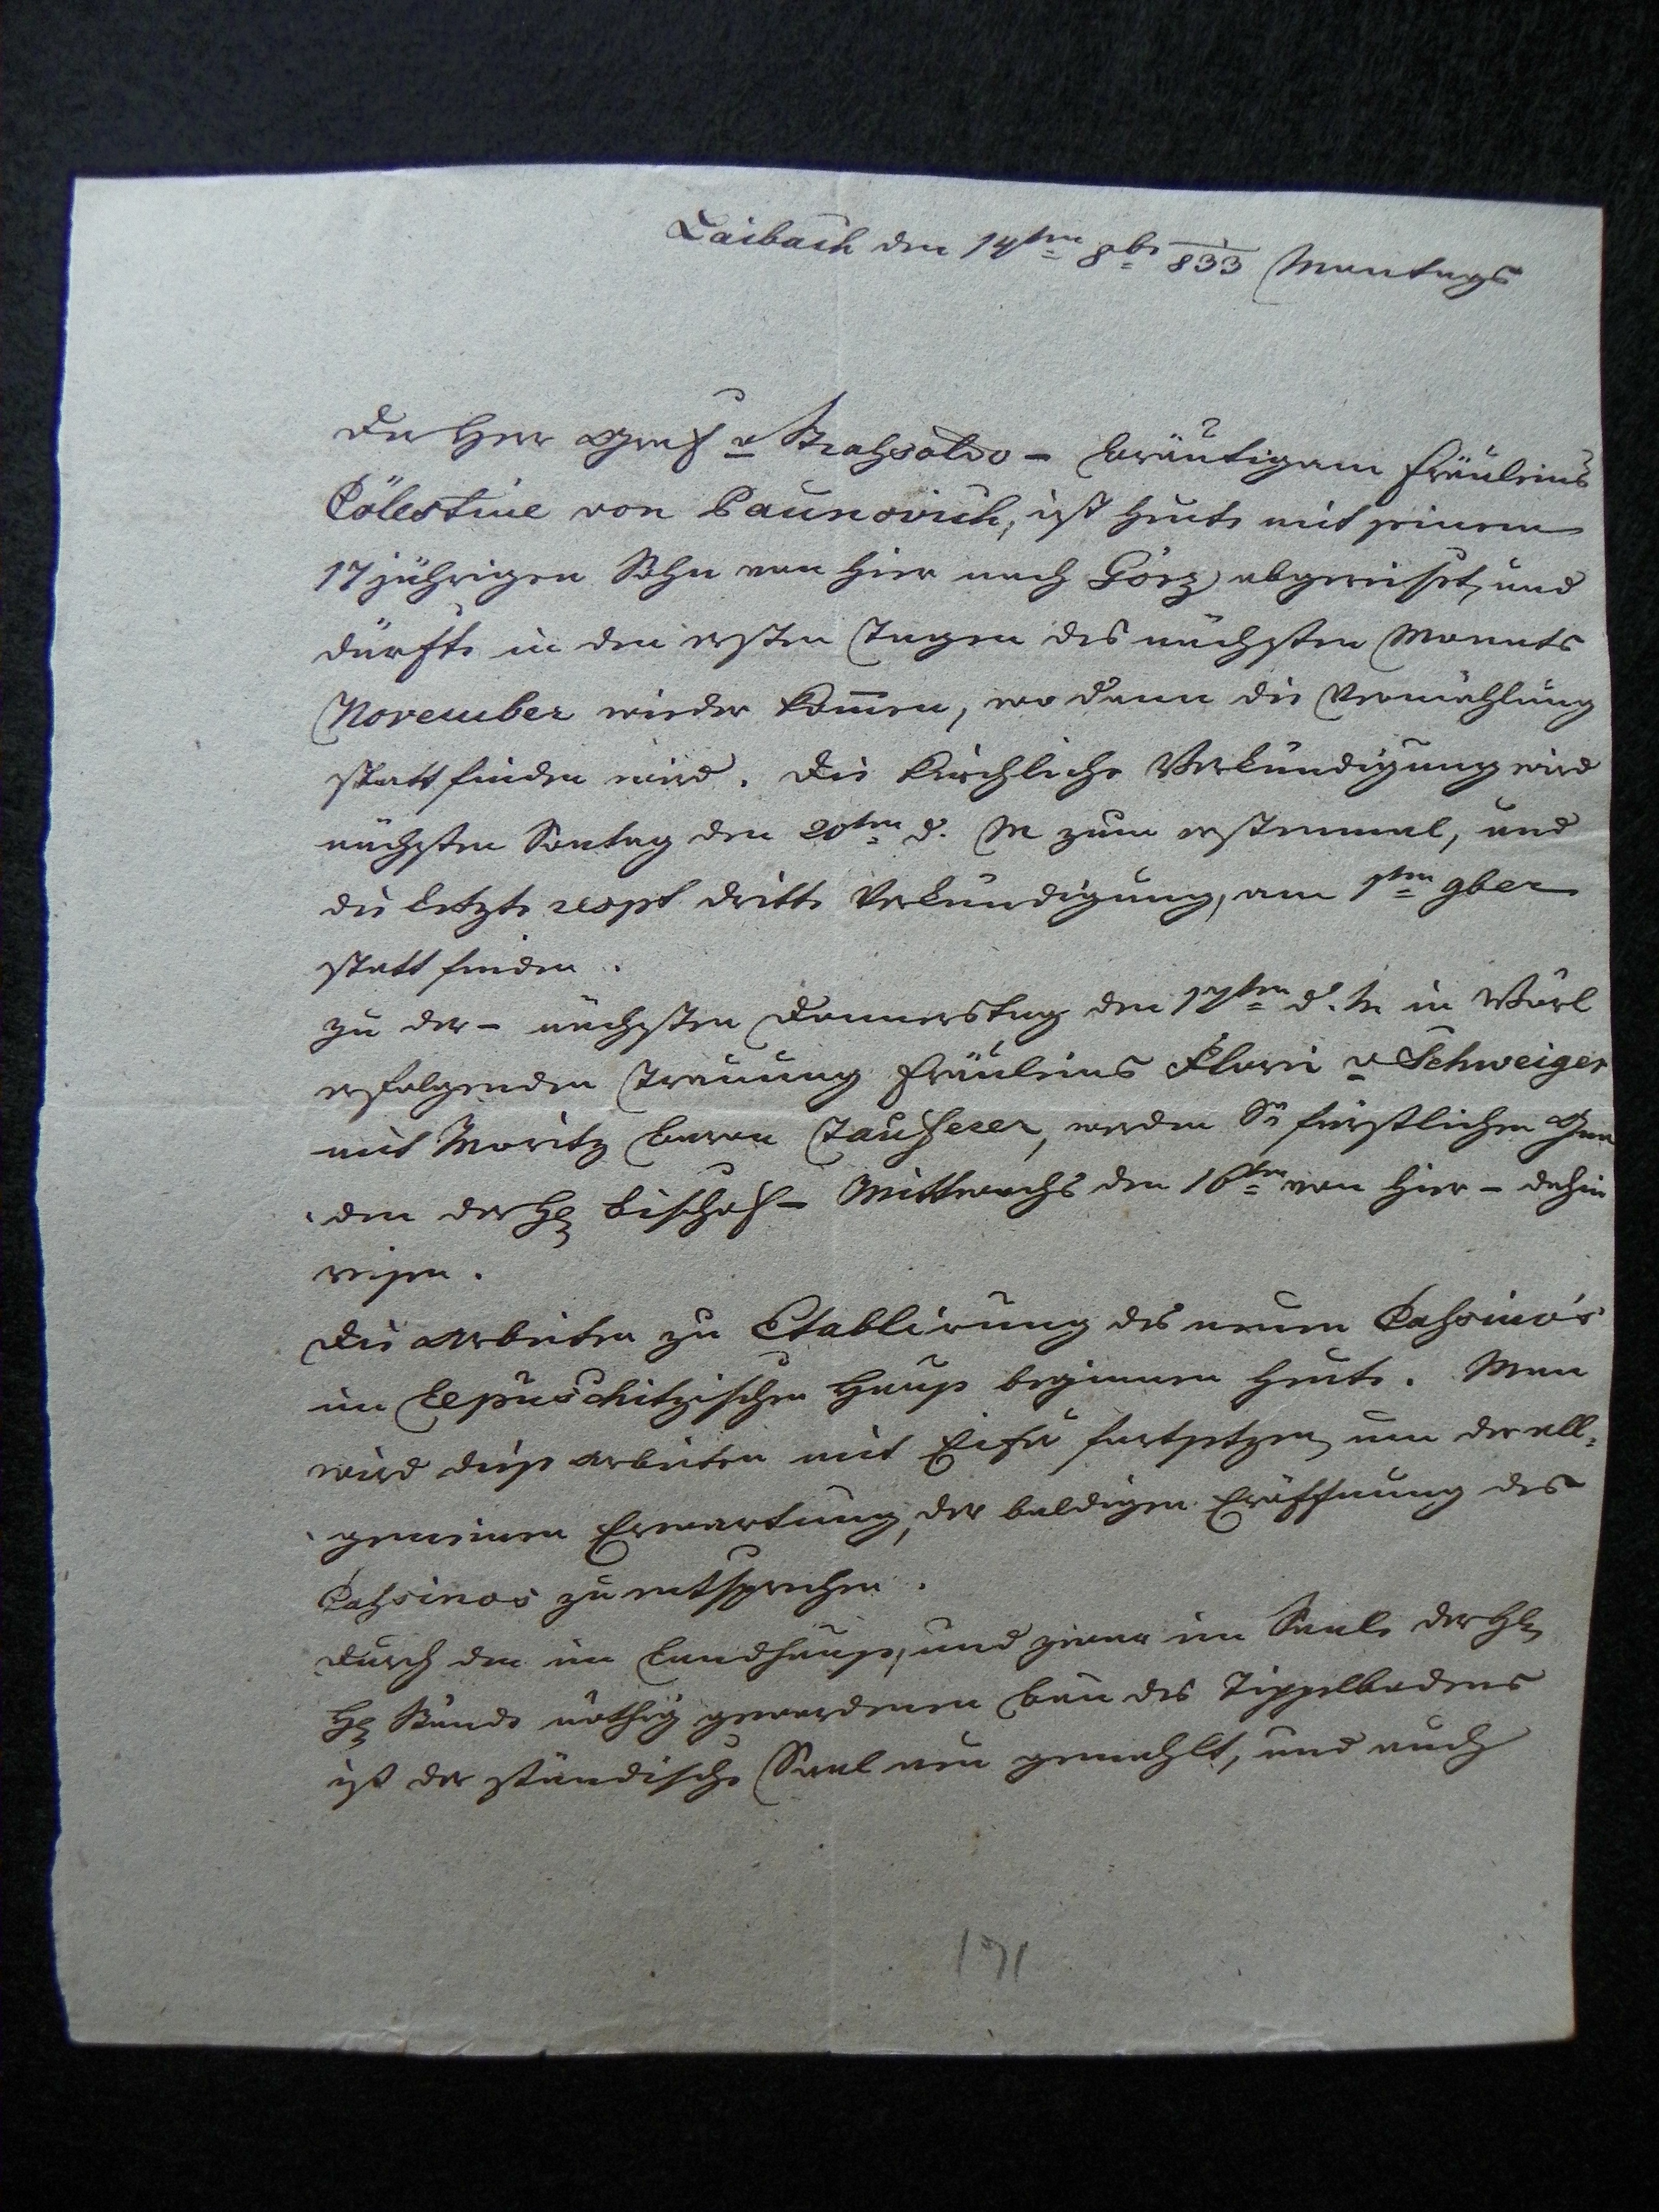 Laibach den 14ten 8br 1/833 Montags
Der Herr Graf v Strahsoldo – Bräutigam Fräuleins
Cölestine von Paunovich, ist heute mit seinem
17jährigen Sohn von hier nach Görz abgereiset, und
dürfte in den ersten Tagen des nächsten Monats
November wieder kom̅en, wo dann die Vermählung
statt finden wird. Die kirchliche Verkündigung wird
nächsten Sontag den 20ten d. M zum erstenmal, und
die letzte respt dritte Verkündigung, am 1ten 9ber
statt finden.
Zu der – nächsten Donnerstag den 17ten d. M. in Wördl
erfolgenden Trauung Fräuleins Flori v Schweiger
mit Moritz Baron Taufferer, werden Se fürstlichen Gna
den der H. Bischof – Mittwochs den 16ten von hier – dahin
reisen.
Die Arbeiten zu Etablirung des neuen Cahsino's
im Lepuschitzischen Hause beginnen heute. Man
wird diese Arbeiten mit Eifer fortsetzen, um der all-
gemeinen Erwartung, der baldigen Eröffnung des
Cahsinos zu entsprechen.
Durch den im Landhause, und zwar im Saale der H.
H. Stände nöthig gewordenen Bau des Tippelbodens
ist der ständische Saal neu gemahlt, und auch
171